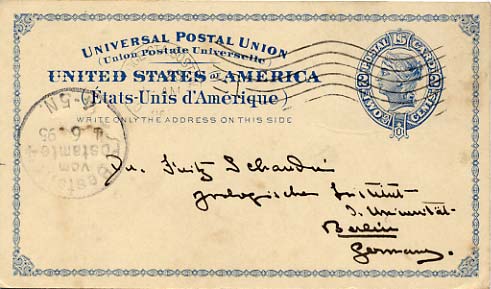 UNIVERSAL POSTAL UNION
(Union Postale Universelle)
UNITED STATES OF AMERICA
(États-Unis d'Amérique)
WRITE ONLY THE ADDRESS ON THIS SIDE
POSTAL CARD
2 TWO CENTS 2
Bestellt
vom
Postamte
6 95
5 N
Dr. Fritz Schaudinn
zoologisches Institut
d. Universität
Berlin
Germany.